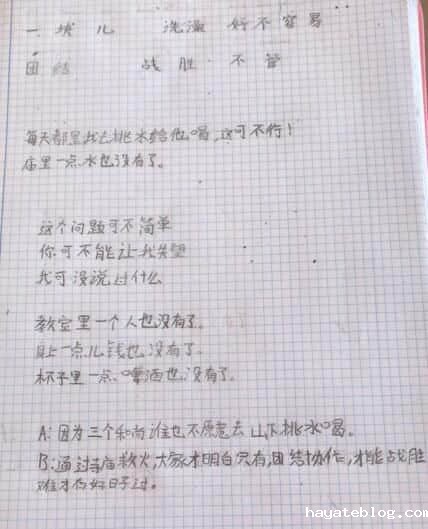 一 块 儿 洗 澡 好 不 容 易
团 结 战 胜 不 管
每天都是我去挑水给他喝,这可不行!
庙里一点水也没有了。
这个问题可不简单
你可不能让我失望
我可没说过什么
教室里一个人也没有了。
身上一点儿钱也没有了。
杯子里一点啤酒也没有了。
A: 因为三个和尚谁也不愿意去山下挑水喝。
B: 通过寺庙救火,大家才明白只有,团结协作,才能战胜
难才有好日子过。
hayateblog.com